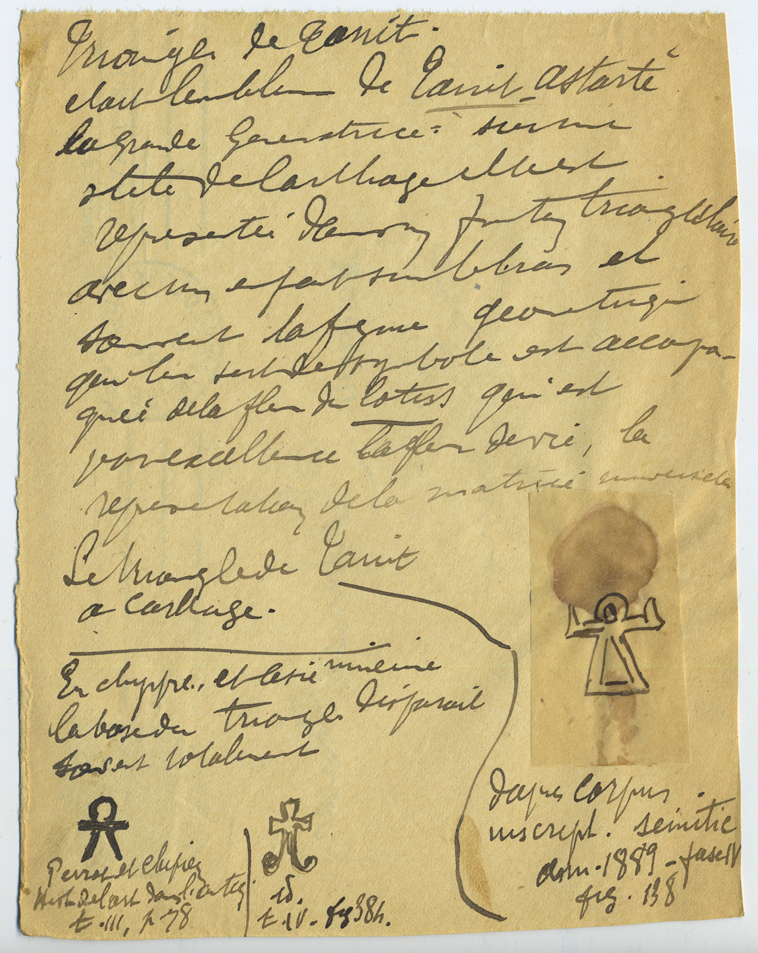 Triangle de Tanit.
c'est l'emblème de Tanit-Astarté
la grande Generatrice: sur une
stele de Carthage elle est
representée dans son triangulaire
avec un enfant sur le bras et
souvent la forme geometrique
qui lui sert de symbole est accompa-
gnée de la fleur de lotus qui est
par excellence la fleur de vie, la
representation de la matrice universelle
Le triangle de Tanit
a Carthage.
En chypre, et l'asie mineure
la base du triangle disparait
souvent totalement
d'apres Corpus.
inscript. semitic
1889 - fasc IV
fig. 138
Perrot et Chipiez
Hist de l'art dans l'antiq.
t. III, p 78
id.
t. IV - fig 384.